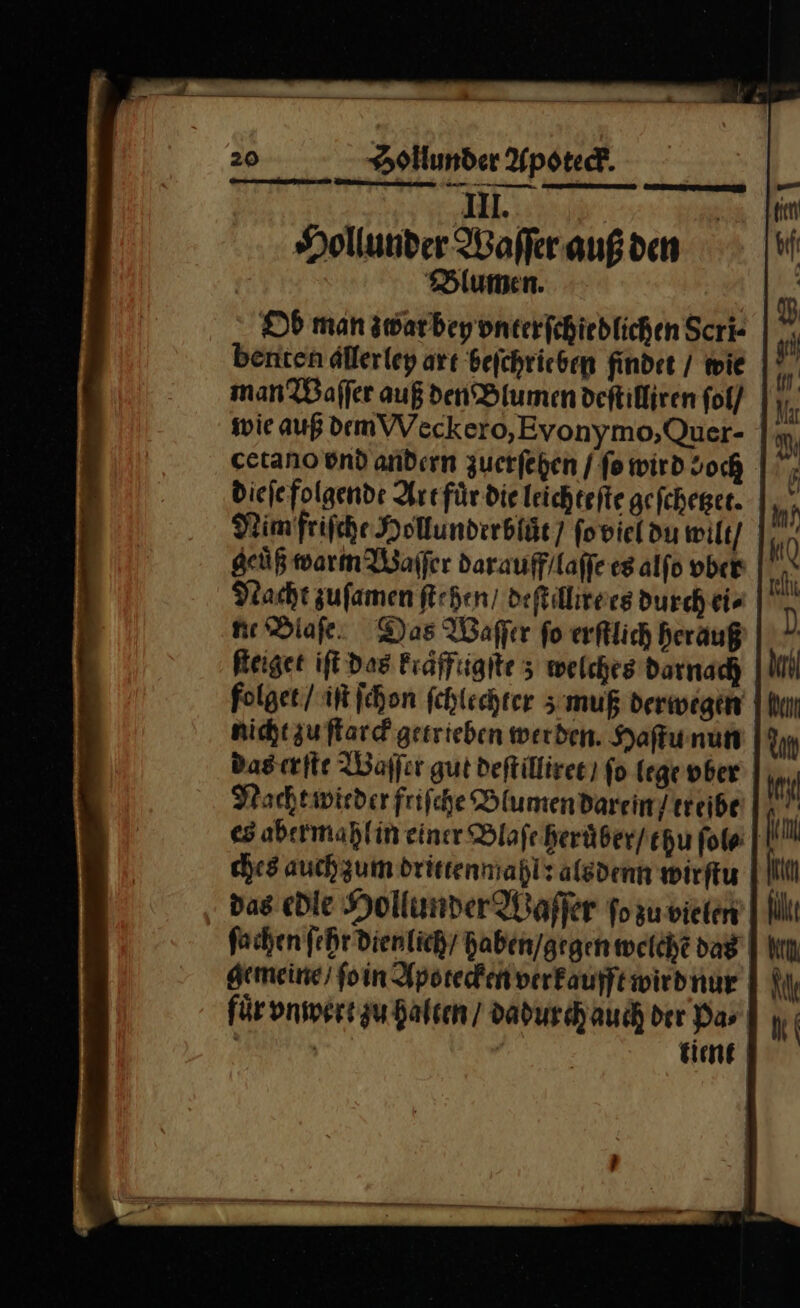 20 Hollunder Apoteck.
III.
Hollunder Waſſer auß den
Blumen.
Ob man zwar bey vnterſchiedlichen Scri-
benten allerley art beſchrieben findet / wie
man Waſſer auß den Blumen deſtilliren ſol/
wie auß dem VVeckero, Evonymo, Quer-
cetano vnd andern zuerſehen / ſo wird doch
dieſe folgende Art für die leichteſte geſchetzet.
Nim friſche Hollunderblüt / ſo viel du wilt/
geüß warm Waſſer darauff/laſſe es alſo vber
Nacht zuſamen ſtehen/ deſtillire es durch ei-
ne Blaſe. Das Waſſer ſo erſtlich herauß
ſteiget iſt das kräfftigſte ; welches darnach
folget / iſt ſchon ſchlechter ; muß derwegen
nicht zu ſtarck getrieben werden. Haſtu nun
das erſte Waſſer gut deſtilliret / ſo lege vber
Nacht wieder friſche Blumen darein / treibe
es abermahl in einer Blaſe herüber/ thu ſol-
ches auch zum drittenmahl: alsdenn wirſtu
das edle Hollunder Waſſer ſo zu vielen
ſachen ſehr dienlich/ haben/gegen welchẽ das
gemeine/ ſo in Apotecken verkaufft wird nur
für vnwert zu halten / dadurch auch der Pa-
tient